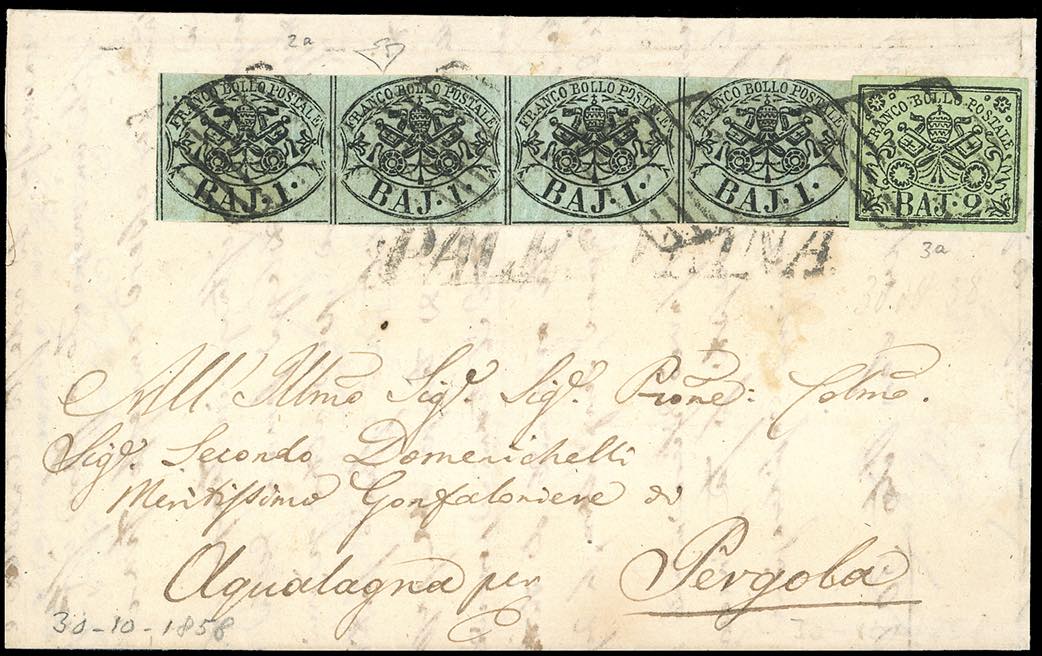 2a
FRANCO BOLLO POSTALE FRANCO BOLLO POSTALE FRANCO BOLLO POSTALE FRANCO BOLLO POSTALE FRANCO BOLLO POSTALE
BAJ. 1. BAJ. 1. BAJ. 1. BAJ. 1. BAJ. 2
3a
All. Illmo Sigr. Sigr. Prone: Colmo.
Sigr. Secondo Domenichelli
Meritissimo Gonfaloniere di
Aqualagna per Pergola
30-10-1858